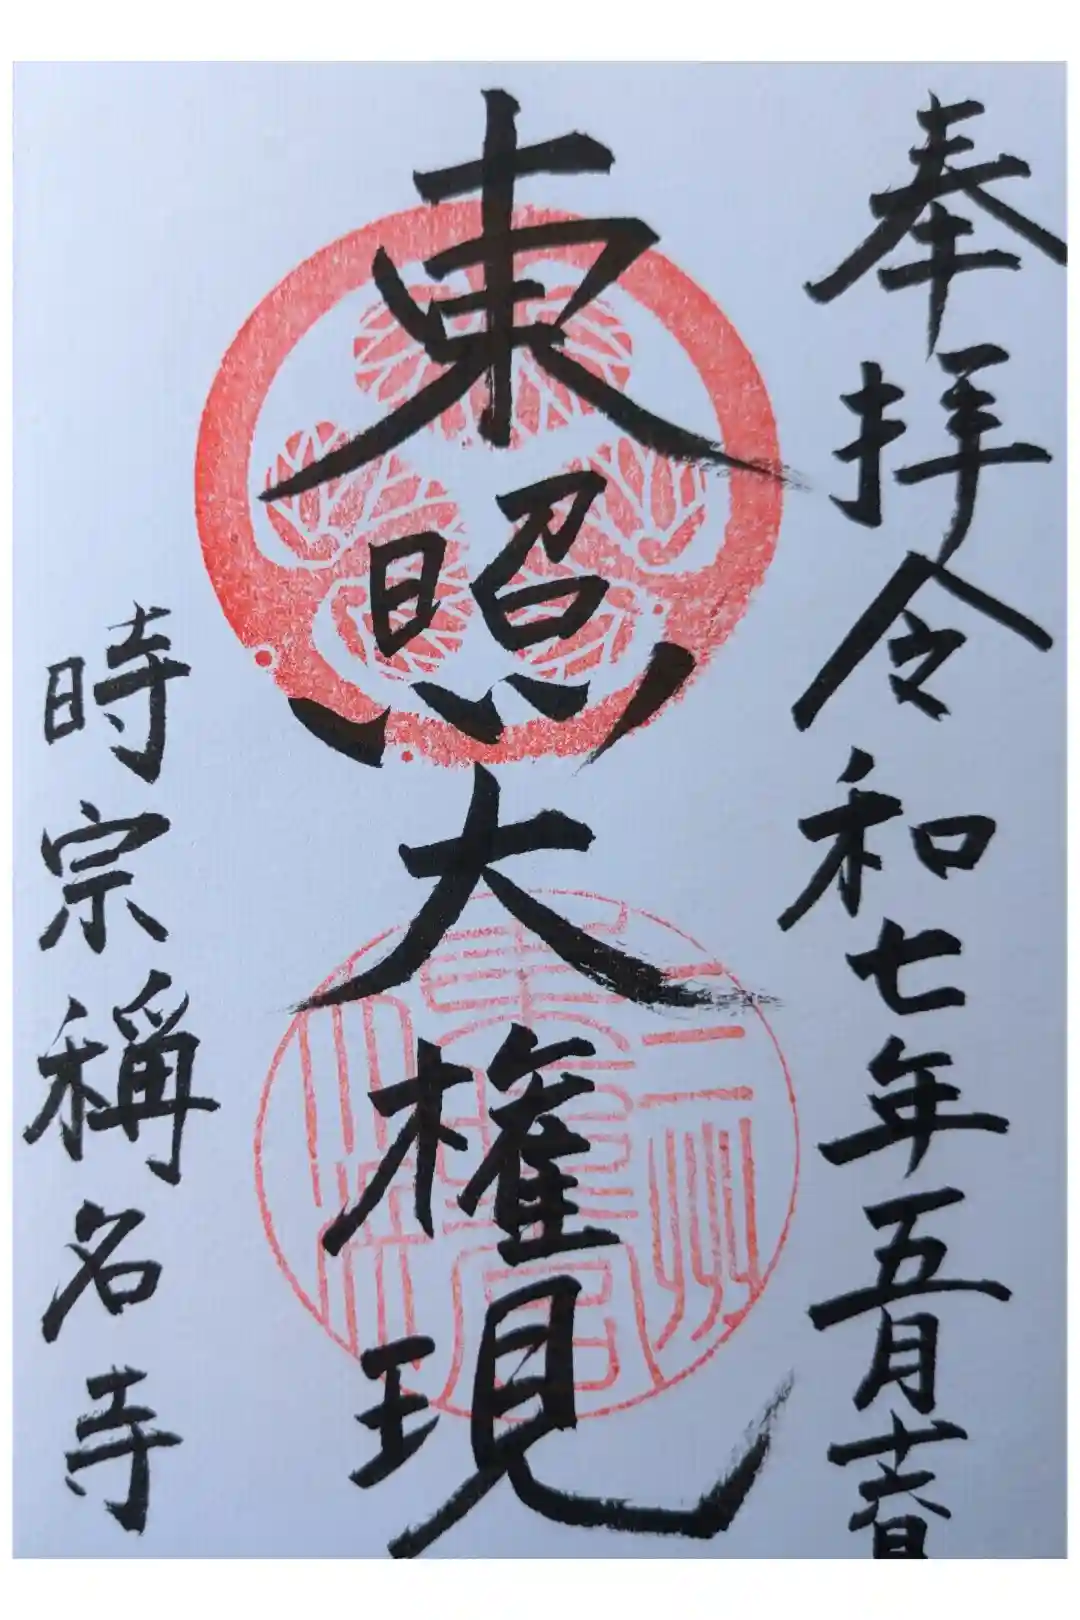 奉拝令和七年五月十
東照大権現
時宗稱名寺